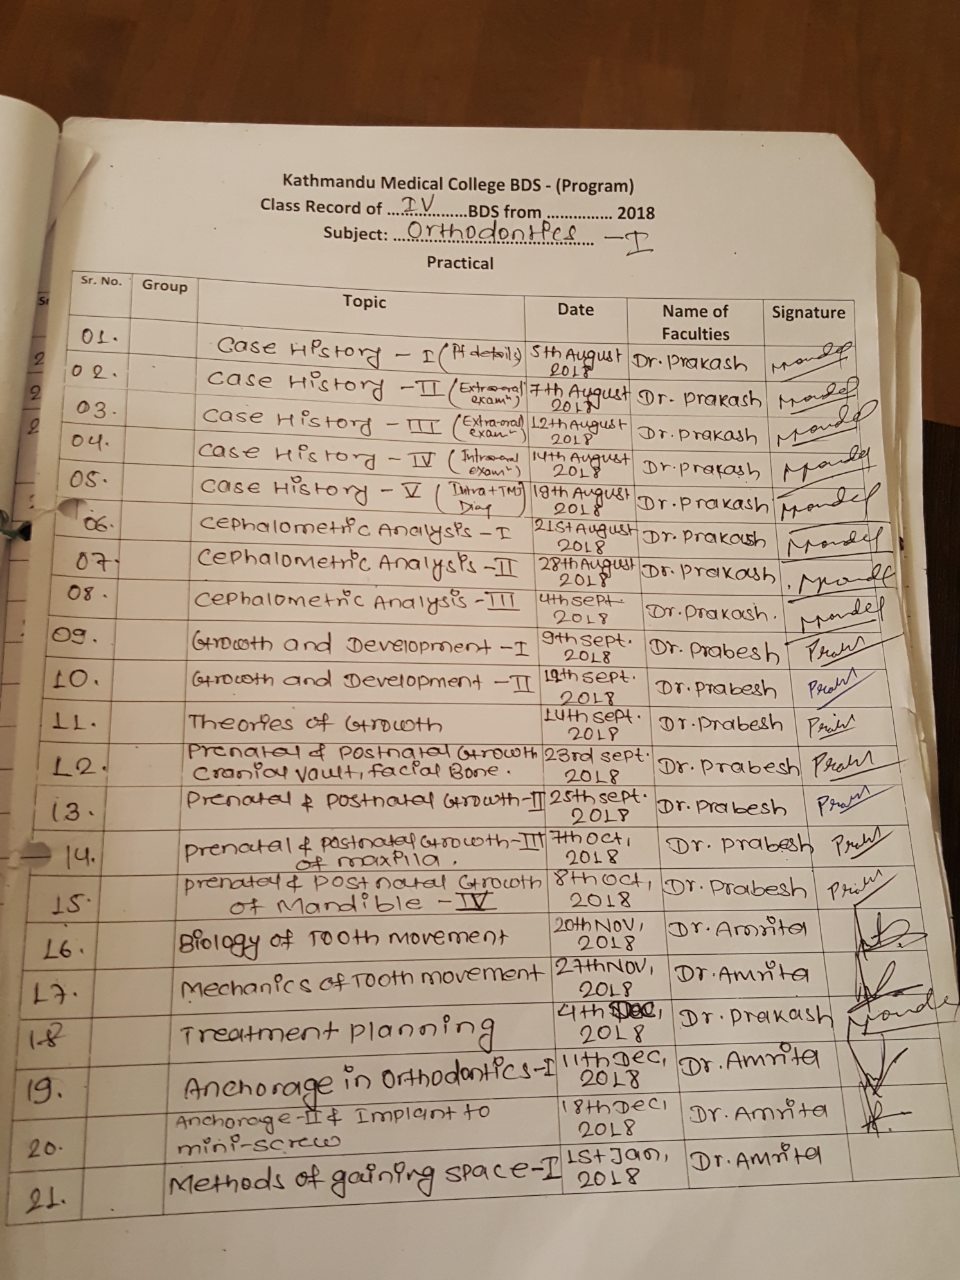 Kathmandu Medical College BDS - (Program)
Class Record of ....IV....BDS from ............... 2018
Subject: Orthodontics - I
Practical
Sr. No. Group Topic Date Name of Faculties Signature
01. Case History - I (Pt details) 5th August 2018 Dr. Prakash
02. Case History - II (Extra-oral examn) 7th August 2018 Dr. Prakash
03. Case History - III (Extra-oral examn) 12th August 2018 Dr. Prakash
04. Case History - IV (Intra-oral examn) 14th August 2018 Dr. Prakash
05. Case History - V (Intra + TMJ Diag 19th August 2018 Dr. Prakash
06. Cephalometric Analysis - I 21st August 2018 Dr. Prakash
07. Cephalometric Analysis - II 28th August 2018 Dr. Prakash
08. Cephalometric Analysis - III 4th sept 2018 Dr. Prakash.
09. Growth and Development - I 9th sept. 2018 Dr. Prabesh
10. Growth and Development - II sept. 2018 Dr. Prabesh
11. Theories of Growth 14th sept. 2018 Dr. Prabesh
12. Prenatal & Postnatal Growth Cranial vault, facial Bone. 23rd sept. 2018 Dr. Prabesh
13. Prenatal & Postnatal Growth - II 25th sept. 2018 Dr. Prabesh
14. prenatal & postnatal Growth - III of maxilla. 7th Oct, 2018 Dr. Prabesh
15. prenatal & postnatal Growth of Mandible - IV 8th Oct, 2018 Dr. Prabesh
16. Biology of Tooth movement 20th Nov, 2018 Dr. Amrita
17. Mechanics of Tooth movement 27th Nov, 2018 Dr. Amrita
18 Treatment planning 4th Dec, 2018 Dr. Prakash
19. Anchorage in Orthodontics - I 11th Dec, 2018 Dr. Amrita
20. Anchorage - II & Implant to mini-screw 18th Dec, 2018 Dr. Amrita
21. Methods of gaining space - I 1st Jan, 2018 Dr. Amrita